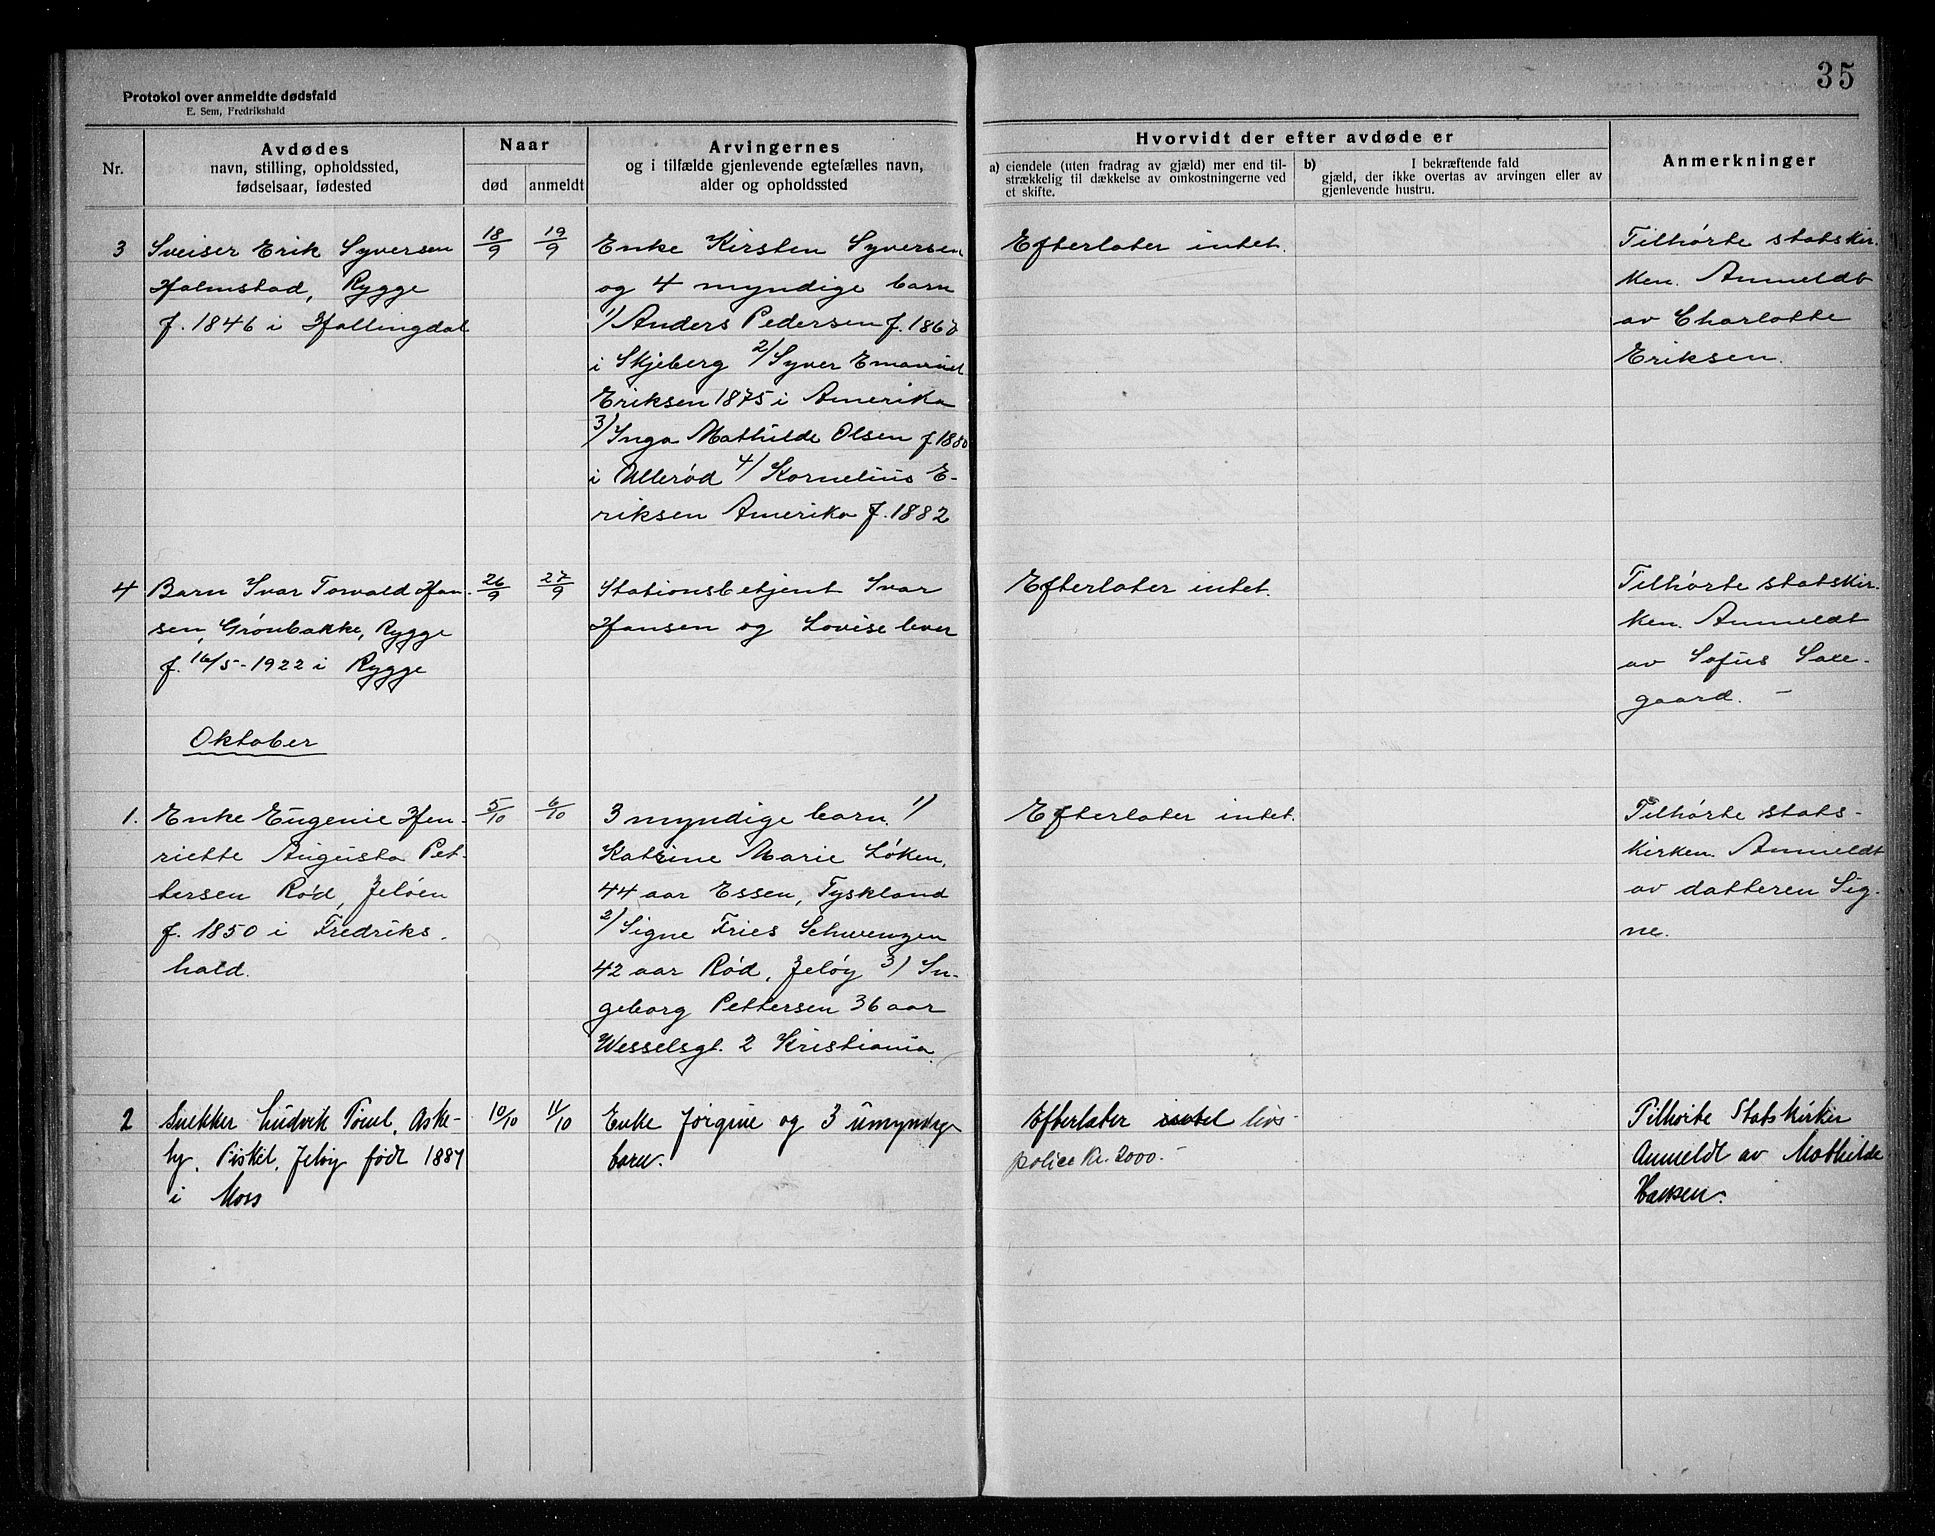 35
Protokol over anmeldte dødsfald
E. Sem, Fredrikshald
Nr.
Avdødes
navn, stilling, opholdssted,
fødselsaar, fødested
Naar
død
anmeldt
Arvingernes
og i tilfælde gjenlevende egtefælles navn,
alder og opholdssted
Hvorvidt der efter avdøde er
a) eiendele (uten fradrag av gjæld) mer end til-
strækkelig til dækkelse av omkostningerne ved
et skifte.
b) I bekræftende fald
gjæld, der ikke overtas av arvingen eller av
gjenlevende hustru.
Anmerkninger
3
Sveiser Erik Syversen
Halmstad, Rygge
f. 1846 i Hallingdal
18/9
19/9
Enke Kirsten Syversen
og 4 myndige barn
1/ Anders Pedersen f.
i Skjeberg 2/ Syver Emanuel
Eriksen 1875 i Amerika
3/ Inga Mathilde Olsen f 1880
i Ullerød 4/ Kornelius E-
riksen Amerika f. 1882
Efterlater intet.
Tilhørte statskir-
ken. Anmeldt
av Charlotte
Eriksen.
4
Barn Ivar Torvald Han-
sen, Grønbakke, Rygge
f. 16/5-1922 i Rygge
26/9
27/9
Stationsbetjent Ivar
Hansen og Lovise lever
Efterlater intet.
Tilhørte statskir-
ken. Anmeldt
av Sofus Saxe-
gaard. -
Oktober
1.
Enke Eugenie Hen-
riette Augusta Pet-
tersen Rød, Jeløen
f. 1850 i Fredriks-
hald.
5/10
6/10
3 myndige barn. 1/
Katrine Marie Løken,
44 aar Essen, Tyskland
2/ Signe Fries Schwenzen
42 aar Rød, Jeløy 3/ In-
geborg Pettersen 36 aar
Wesselsgt. 2 Kristiania.
Efterlater intet.
Tilhørte stats-
kirken. Anmeldt
av datteren Sig-
ne.
2
Snekker Ludvik Aske-
by, Jeløy født 1887
i Moss
10/10
11/10
Enke Jørgine og 3 umyndige
barn.
Efterlater intet livs-
police kr. 2000.-
Tilhørte Statskirken
Anmeldt av Mathilde
Hansen.